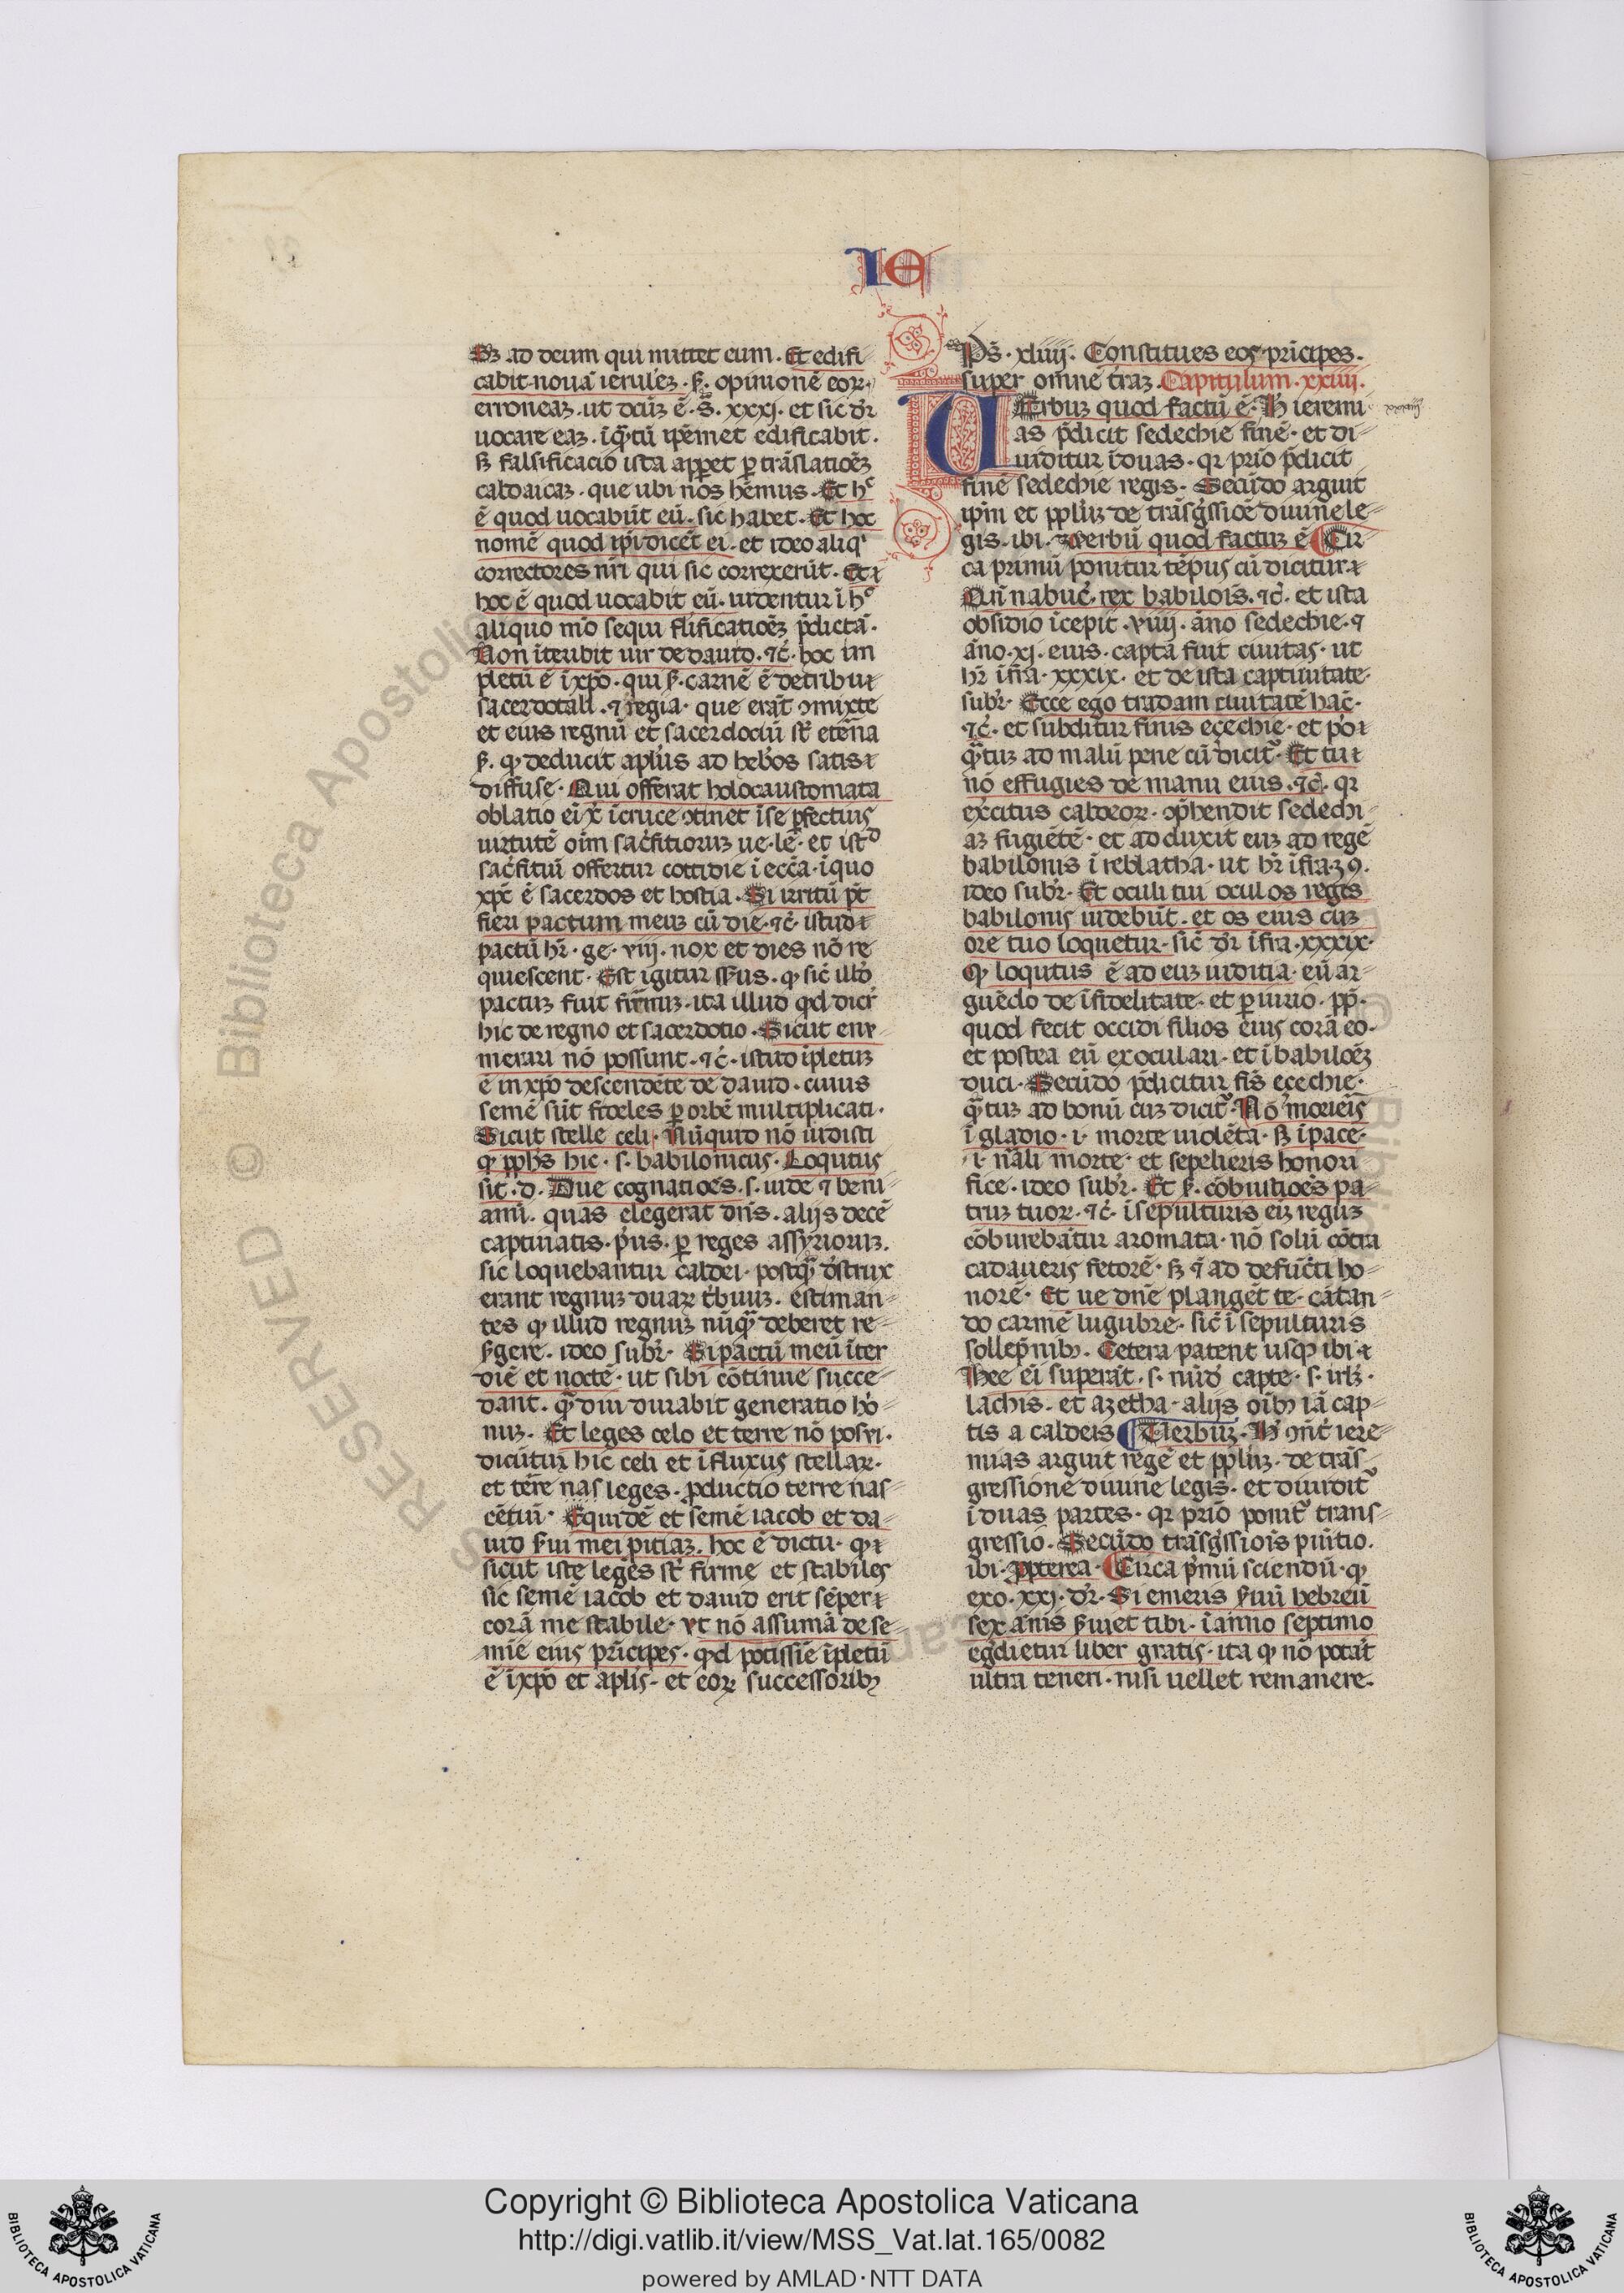 IE
Sꝫ ad deum qui mittet eum. Et edifi
cabit nouā ierusꝫ. ẜ. opinionē eoꝝ
erroneaꝫ. ut dcūꝫ ē. S̄. xxxj. et sic dr̄
uocare eaꝫ. īqͣtū ip̄emet edificabit.
sꝫ falsificacio ista appꝫet ꝑ trāslatiōeꝫ
caldaicaꝫ. que ubi nos hēmus. Et hͨ
ē quod uocabūt eū. sic habet. Et hoc
nomē quod ip̄i dicēt ei. et ideo aliqͥ
correctores nr̄i qui sic correxerūt. Et
hoc ē quod uocabit eū. uidentur ī hͦ
aliquo mō sequi flificatiōeꝫ p̄dictā.
Non īteribit uir de dauid. ⁊c̄. hoc im
pletū ē ī xp̄o. qui ẜ. carnē ē de tribu
sacerdotali. ⁊ regia. que erāt ꝯmixte
et eius regnū et sacerdociū st̄ etēna
ẜ. ꝙ deducit apl̄us ad hebōs satis
diffuse. Qui offerat holocaustomata
oblatio ei xp̄i ī cruce ꝯtinet ī se ꝑfectius
uirtutē oīm sac̄fitioruꝫ ue. le. et istᵈ
sac̄fitiū offertur cottidie ī ecc̄a. ī quo
xp̄c ē sacerdos et hostia. Si irritū pt̄
fieri pactum meuꝫ cū die. ⁊c̄. istud
pactū hr̄. ge. viij. nox et dies nō re
quiescent. Est igitur ssus. ꝙ sic̄ illd̄
pactuꝫ fuit firmuꝫ. ita illud qd dicr̄
hic de regno et sacerdotio. Sicut enu
merari nō possunt. ⁊c̄. istud īpletuꝫ
ē in xp̄o descendēte de dauid. cuius
semē sūt fideles ꝑ orbē multiplicati.
Sicut stelle celi. Nūquid nō uidisti
ꝙ pp̄ls hic. s. babilonicus. Loqutus
sit. d. Due cognatiōes. s. iude ⁊ beni
amī. quas elegerat dn̄s. alijs decē
captiuatis. p̄us. ꝑ reges assyrioruꝫ.
sic loquebantur caldei. postqͣ dstrux
erant regnuꝫ duaꝝ t̄buuꝫ. estiman
tes ꝙ illud regnuꝫ nūqͣ deberet re
ẜgere. ideo subr̄. Si pactū meū īter
diē et noctē. ut sibi cōtinue succe
dant. qͣdiu durabit generatio hō
nuꝫ. Et leges celo et terre nō posui.
dicūtur hic celi et īfluxus stellaꝝ.
et terre nas leges. ꝓductio terre nas
cētiū. Equidē et semē iacob et da
uid ẜui mei piciaꝫ. hoc ē dictu. ꝙ
sicut iste leges st̄ firme et stabiles
sic semē iacob et dauid erit sēper
corā me stabile. ut nō assumā de se
mīe eius prīcipes. qd potissīe īpletū
ē ī xp̄o et aplis. et eoꝝ successoribꝫ
Ps̄. xliiij. Constitues eos prīcipes.
super omnē traꝫ. Capitulum. xxiiij.
Uerbuꝫ quod factū ē. Hieremi
as p̄dicit sedechie finē. et di
uiditur ī duas. qꝛ prīo p̄dicit
finē sedechie regis. Secūdo arguit
ip̄m et pp̄l̄uꝫ de trāsgssiōe diuine le
gis. ibi. Uerbū quod factuꝫ ē. Cir
ca primū ponitur tēpus cū dicitur
Qn̄ nabuc̄. rex babilōis. ⁊c̄. et ista
obsidio īcepit. viiij. āno sedechie. ⁊
āno. xj. eius. capta fuit ciuitas. ut
hr̄ ifra. xxxix. et de ista captiuitate
subr̄. Ecce ego tradam ciuitatē hāc.
⁊c̄. et subditur finis eçechie. et p̄o
qͣtuꝫ ad malū pene cū dicitᷣ. Et tu
nō effugies de manu eius. ⁊c̄. qꝛ
exc̄itus caldeoꝝ. ꝯp̄hendit sedechi
aꝫ fugiētē. et adduxit euꝫ ad regē
babilonis ī reblatha. ut hr̄ ifra. 39.
ideo subr̄. Et oculi tui oculos regis
babilonis uidebūt. et os eius cuꝫ
ore tuo loquetur. sic̄ dr̄ ifra. xxxix.
ꝙ loqutus ē ad euꝫ iuditia. eū ar
guēdo de īfidelitate. et ꝑiurio. pp̄.
quod fecit occidi filios eius corā eo.
et postea eū exoculari. et ī babilōeꝫ
duci. Secūdo p̄dicitur fis̄ eçechie.
qͣtuꝫ ad bonū cuꝫ dicitᷣ. Nō morieīs
ī gladio. i. morte uiolēta. sꝫ ī pace.
i. nāli morte. et sepelieris honori
fice. ideo subr̄. Et ẜ. cōbustiōes pa
truꝫ tuoꝝ. ⁊c̄. ī sepulturis eīꝫ reguꝫ
cōburebātur aromata. nō solū cōtra
cadaueris fetorē. sꝫ ⁊ ad defūcti ho
norē. Et ue dn̄e plangēt te. cātan
do carmē lugubre. sic̄ ī sepulturis
sollep̄nibꝫ. Cetera patent usqꝫ ibi
Hee ei superāt. s. nūd̄ capte. s. irlꝫ.
lachis. et azetha. alijs oībꝫ iā cap
tis a caldeis. Uerbuꝫ. Hͨ ꝯn̄t iere
mias arguit regē et pp̄l̄uꝫ. de trās
gressione diuine legis. et diuiditᷣ
ī duas partes. qꝛ prīo ponitᷣ trans
gressio. Secūdo trāsgssiōis pūitio.
ibi. ꝓpterea. Circa p̄mū sciendū. ꝙ
exo. xxj. dr̄. Si emeris ẜuū hebreū
sex ānis ẜuiet tibi. ī anno septimo
egdietur liber gratis. ita ꝙ nō potāt
ultra teneri. nisi uellet remanere.
Copyright © Biblioteca Apostolica Vaticana
http://digi.vatlib.it/view/MSS_Vat.lat.165/0082
powered by AMLAD·NTT DATA
BIBLIOTECA APOSTOLICA VATICANA
BIBLIOTECA APOSTOLICA VATICANA